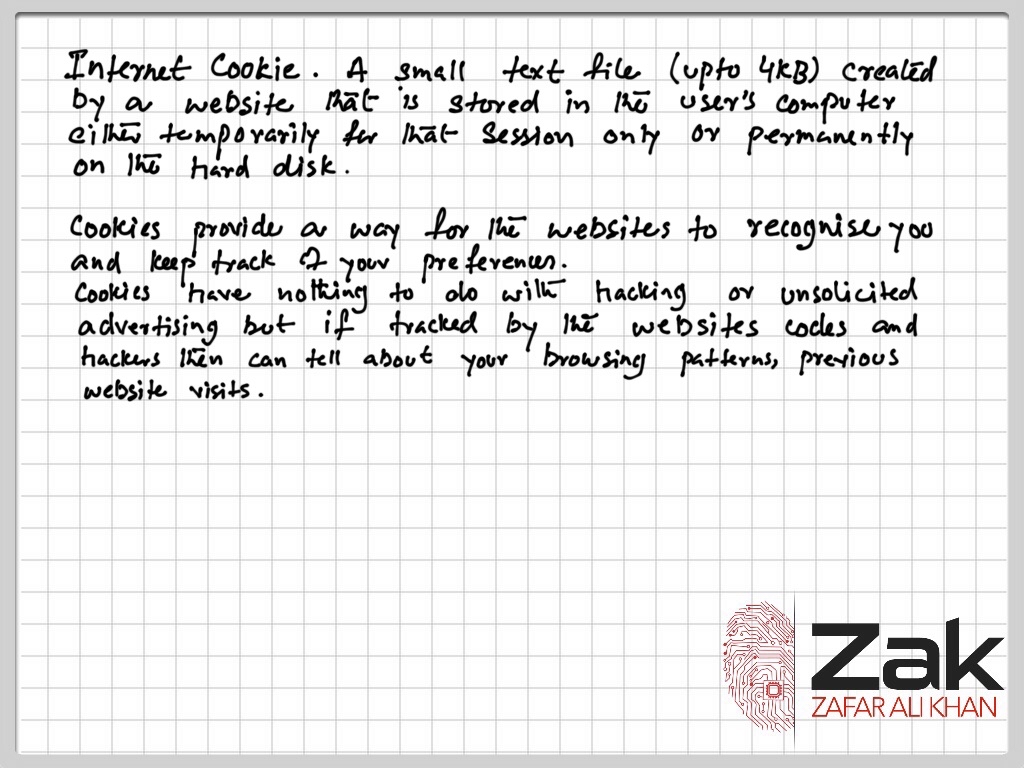 Internet Cookie. A small text file (upto 4KB) created
by a website that is stored in the user's computer
either temporarily for that session only or permanently
on the hard disk.
Cookies provide a way for the websites to recognise you
and keep track of your preferences.
Cookies have nothing to do with hacking or unsolicited
advertising but if tracked by the websites codes and
hackers then can tell about your browsing patterns, previous
website visits.
Zak
ZAFAR ALI KHAN